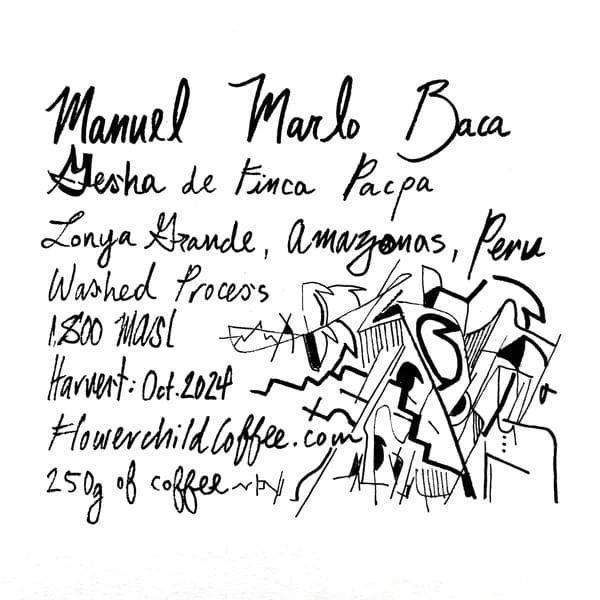 Manuel Marlo Baca
Gesha de Finca Pacpa
Lonya Grande, Amazonas, Peru
Washed Process
1,800 MASL
Harvest: Oct. 2024
FlowerchildCoffee.com
250g of coffee